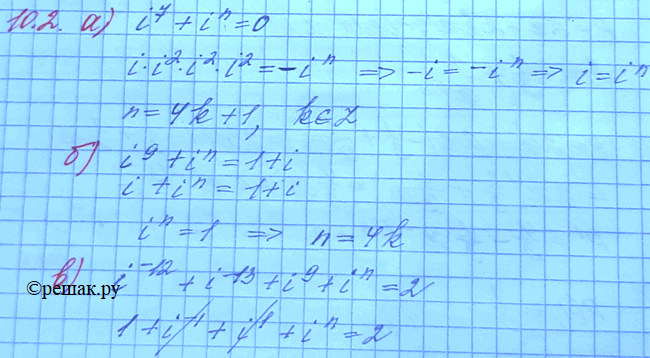 10.2. а) i⁷ + iⁿ = 0
i·i²·i²·i² = -iⁿ => -i = -iⁿ => i = iⁿ
n = 4k + 1, k∈Z
б) i⁹ + iⁿ = 1 + i
i + iⁿ = 1 + i
iⁿ = 1 => n = 4k
в) i⁻¹² + i⁻¹³ + i⁹ + iⁿ = 2
©решак.ру
1 + i⁻¹ + i¹ + iⁿ = 2